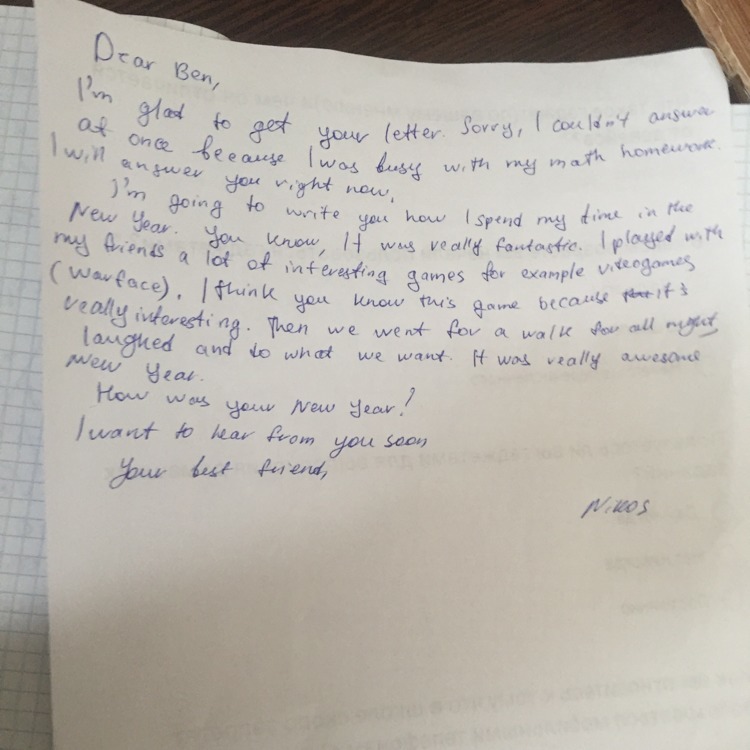 Dear Ben,
I'm glad to get your letter. Sorry, I couldn't answer
at once because I was busy with my math homework.
I will answer you right now.
I'm going to write you how I spend my time in the
New Year. You know, It was really fantastic. I played with
my friends a lot of interesting games for example videogames
(Warface). I think you know this game because it's
really interesting. Then we went for a walk for all night,
laughed and do what we want. It was really awesome
New Year.
How was your New Year?
I want to hear from you soon
Your best friend,
Nikos